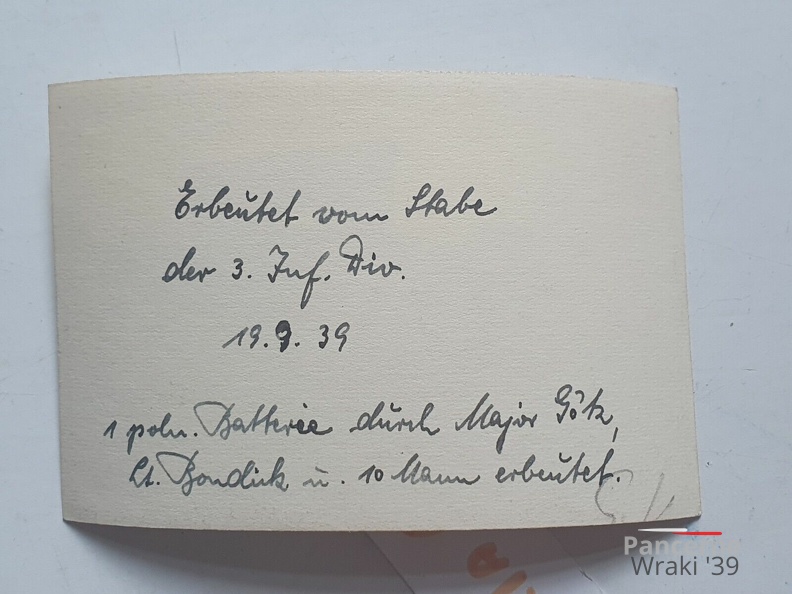 Erbeutet vom Stabe
der 3. Inf. Div.
19.9.39
1 poln. Batterie durch Major Götz,
Lt. Bondick u. 10 Mann erbeutet.
Wraki '39